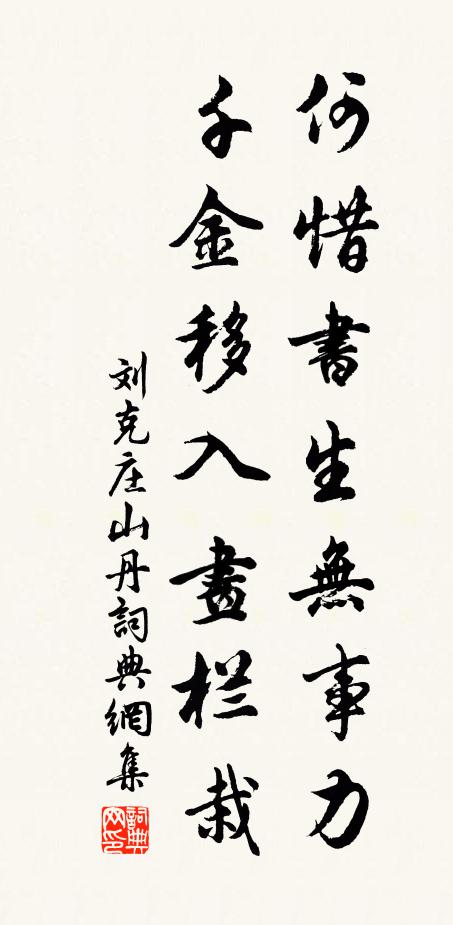 何惜書生無事力
千金移入畫栏栽
刘克庄山丹詞典網集
詞典网印